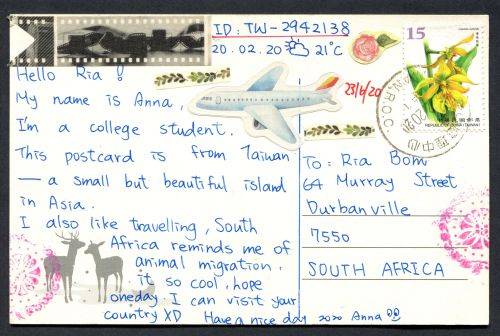 ID: TW-2942138
20.02.20 21°C
Hello Ria
23/6/20
My name is Anna,
I'm a college student.
This postcard is from Taiwan
— a small but beautiful island
in Asia.
I also like travelling, South
Africa reminds me of
animal migration.
it so cool, hope
oneday I can visit your
country XD Have a nice day 2020 Anna
15
REPUBLIC OF CHINA (TAIWAN)
R.O.C.
To: Ria Bom
64 Murray Street
Durbanville
7550
SOUTH AFRICA